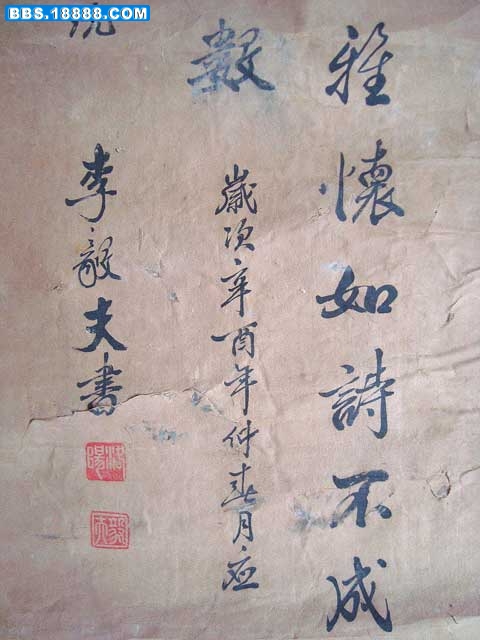 BBS.18888.COM
雅懷如詩不成
數
歲次辛酉年仲春月应
李毅夫書
洛陽
毅夫